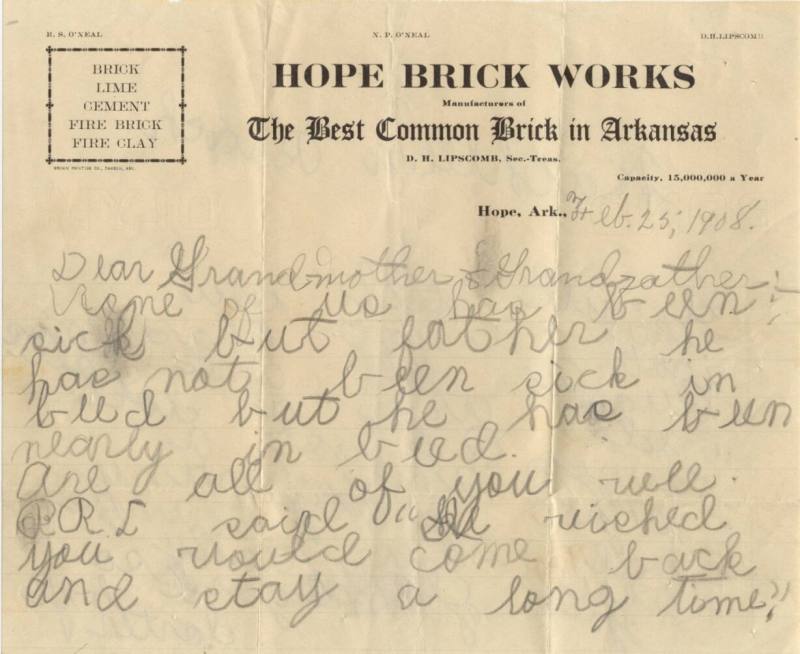 R. S. O'NEAL
N. P. O'NEAL
D. H. LIPSCOMB
BRICK
LIME
CEMENT
FIRE BRICK
FIRE CLAY
HOPE BRICK WORKS
Manufacturers of
The Best Common Brick in Arkansas
D. H. LIPSCOMB, Sec.-Treas.
Capacity, 15,000,000 a Year
Hope, Ark., Feb. 25, 1908.
Dear Grandmother & Grandfather:
None of us has been
sick but father he
has not been sick in
bed but he has been
nearly in bed.
Are all of you well.
R R L said "I wished
you would come back
and stay a long time."